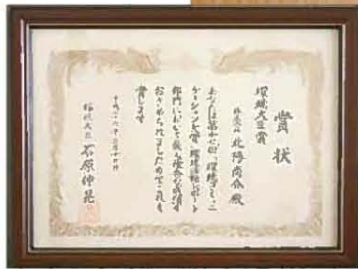 賞状
環境大臣賞
株式会社 北陸商会 殿
あなたは第十七回「環境コミュニ
ケーション大賞」環境活動レポート
部門において最も優秀な成績を
おさめられましたのでこれを
賞します
平成二十六年二月
環境大臣 石原伸晃